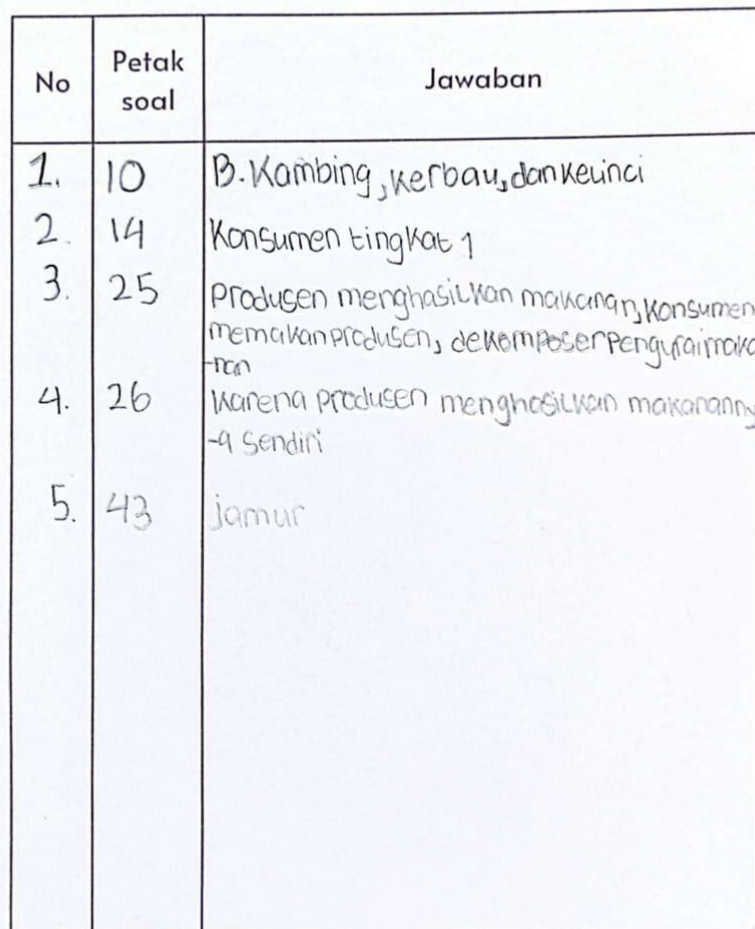 No Petak soal Jawaban
1. 10 B. Kambing, kerbau, dan kelinci
2. 14 Konsumen tingkat 1
3. 25 Produsen menghasilkan makanan, konsumen
memakan produsen, dekomposer pengurai maka
-nan
4. 26 Karena produsen menghasilkan makananny
-a sendiri
5. 43 jamur